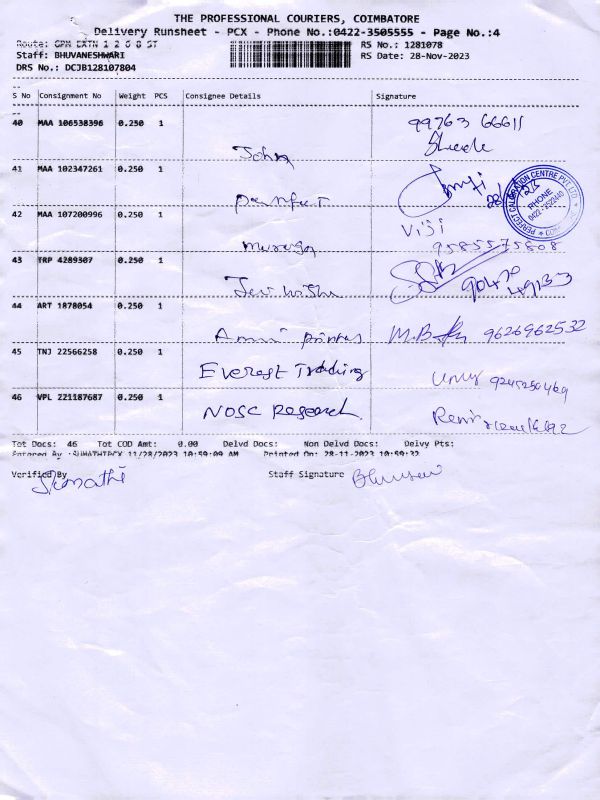 THE PROFESSIONAL COURIERS, COIMBATORE
Delivery Runsheet - PCX - Phone No.:0422-3505555 - Page No.:4
Route: GPM EXTN 1 2 6 8 ST
RS No.: 1281078
Staff: BHUVANESHWARI
RS Date: 28-Nov-2023
DRS No.: DCJB128107804
S No Consignment No Weight PCS Consignee Details Signature
40 MAA 106538396 0.250 1
99763 66611
John
41 MAA 102347261 0.250 1
PERFECT CALIBRATION CENTRE PVT LTD
PHONE
0422-2522440
Perfect
42 MAA 107200996 0.250 1
Viji
9585575808
Muruga
43 TRP 4289307 0.250 1
90470
49133
44 ART 1878054 0.250 1
M.B 9626962532
45 TNJ 22566258 0.250 1
Everest Trading
46 VPL 221187687 0.250 1
NOSC Research
Tot Docs: 46 Tot COD Amt: 0.00 Delvd Docs: Non Delvd Docs: Delvy Pts:
Entered By :SUMATHIPCX 11/28/2023 10:59:09 AM Printed On: 28-11-2023 10:59:32
Verified By
Sumathi
Staff Signature